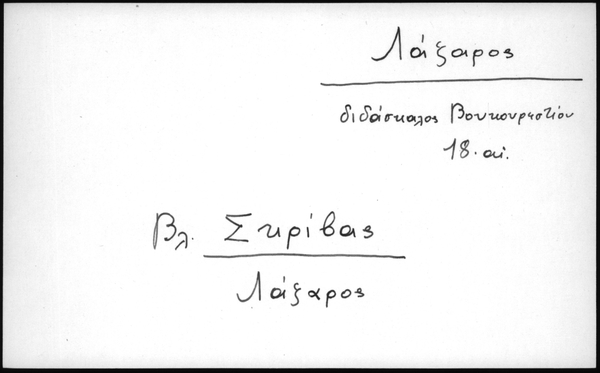 Λάζαρος
διδάσκαλος Βουκουρεστίου
18. αἰ.
Βλ. Σκρίβας
Λάζαρος